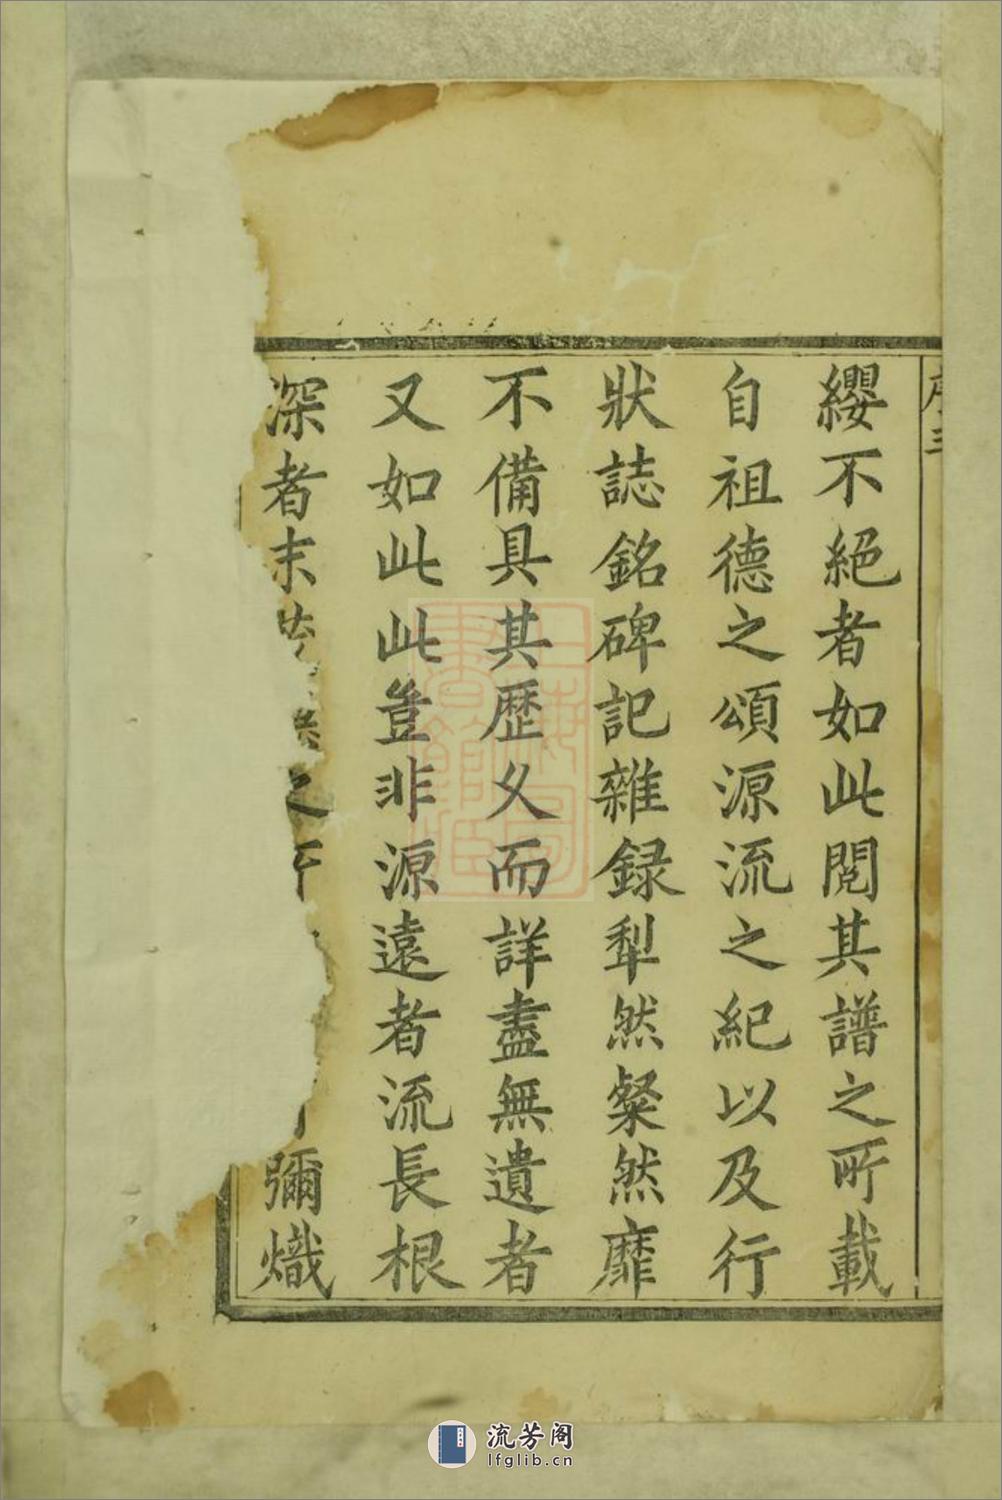 序三
纓不絕者如此閱其譜之所載
自祖德之頌源流之紀以及行
狀誌銘碑記雜録犁然粲然靡
不備具其歷久而詳盡無遺者
又如此此豈非源遠者流長根
深者末之彌熾
流芳阁
lfglib.cn